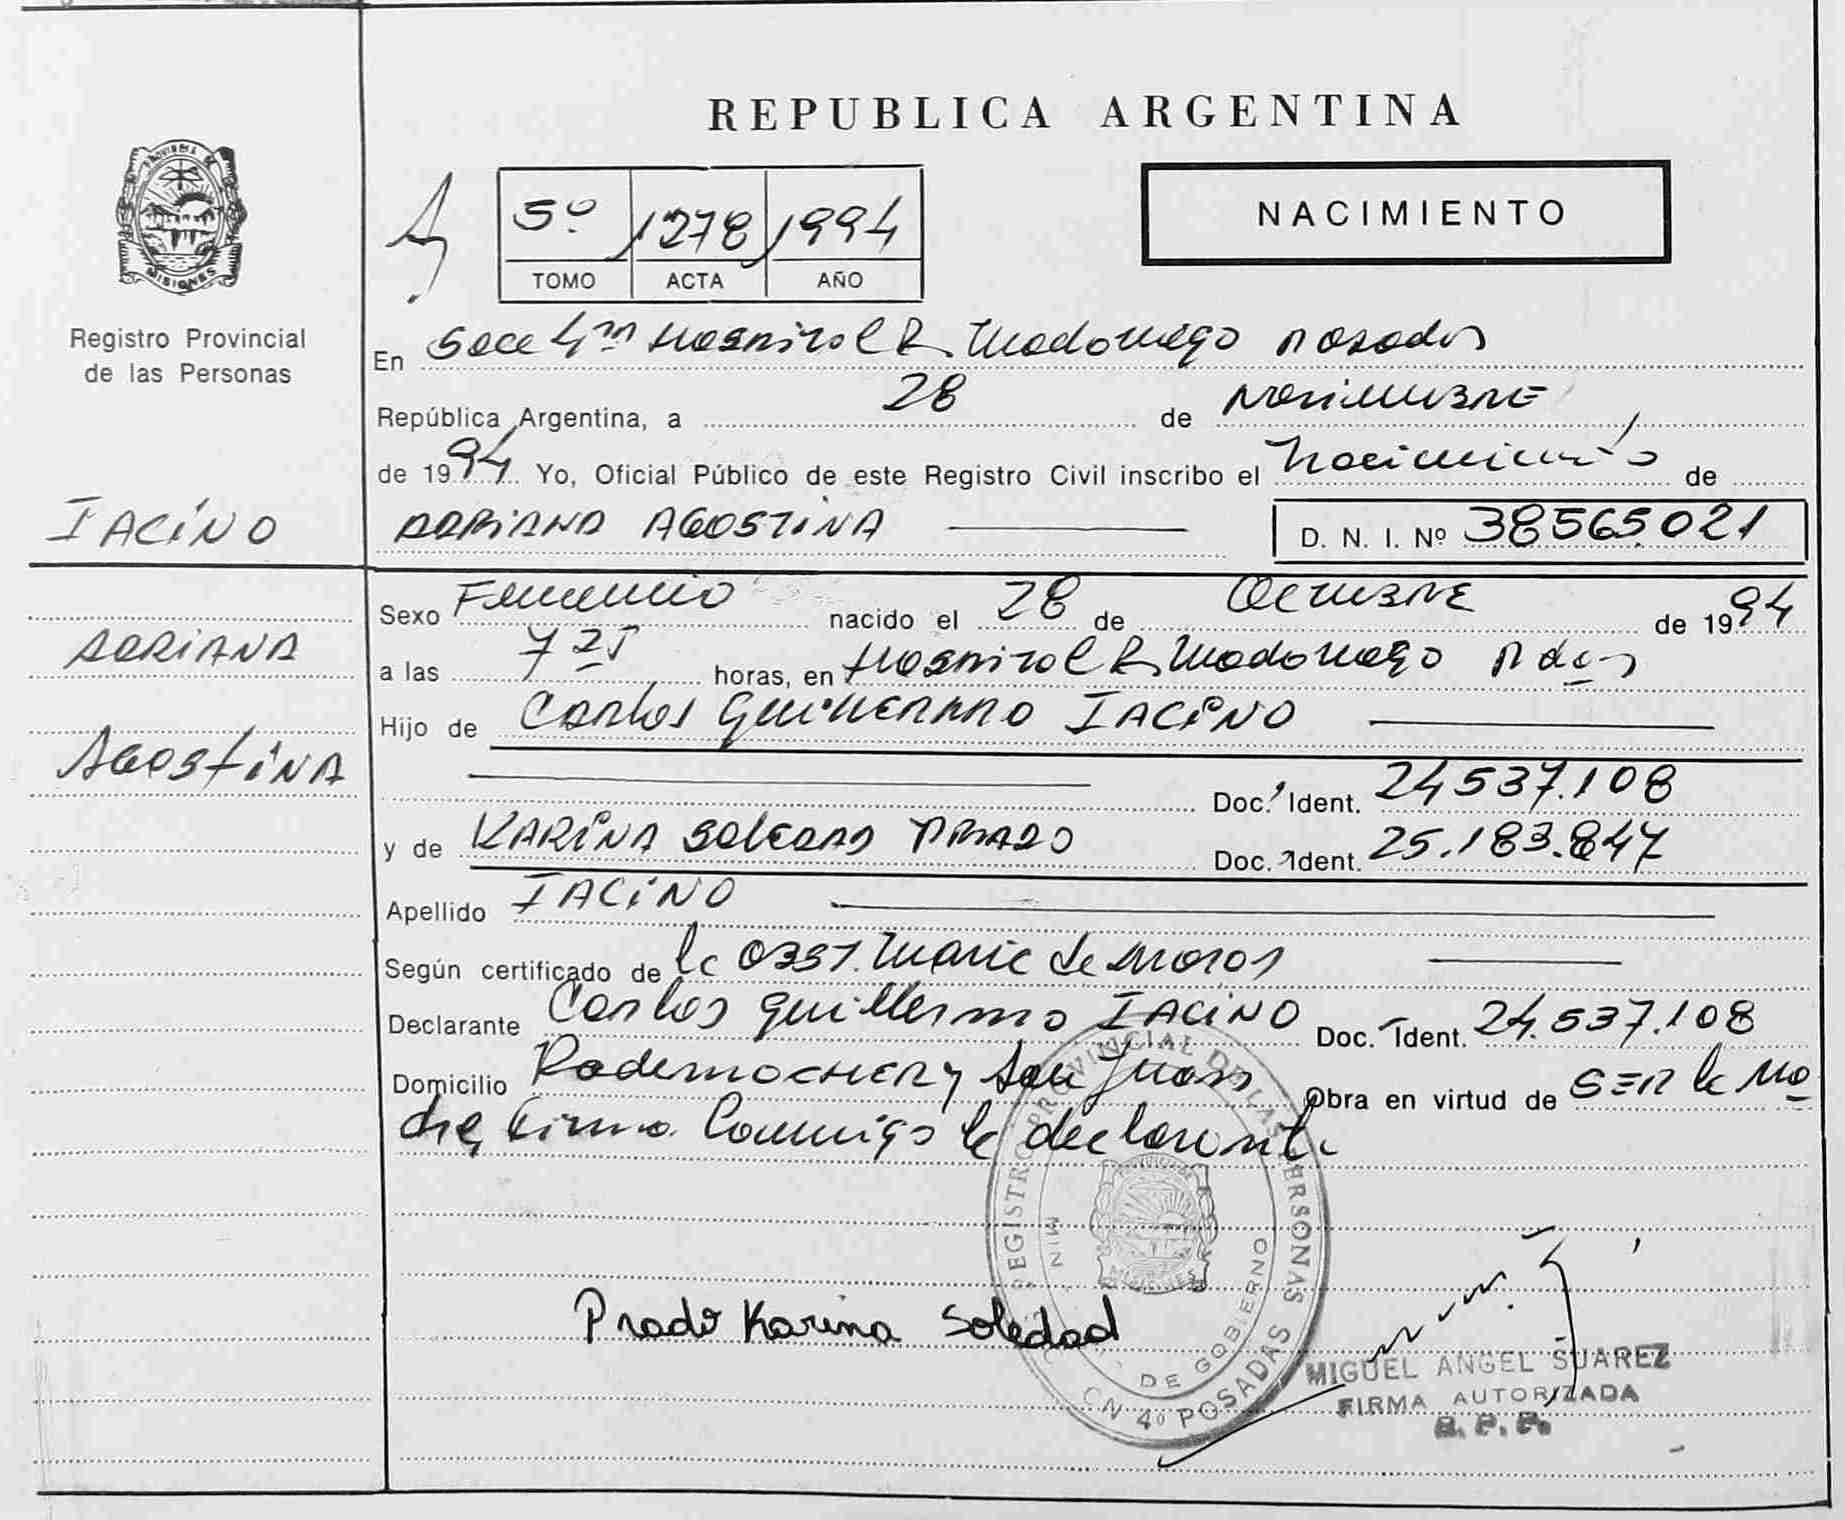 REPUBLICA ARGENTINA
PROVINCIA DE
MISIONES
Registro Provincial
de las Personas
5º 1278 1994
TOMO ACTA AÑO
NACIMIENTO
En Secc 4ta Hospital R. Madariaga Posadas
República Argentina, a 28 de Noviembre
de 1994 Yo, Oficial Público de este Registro Civil inscribo el Nacimiento de
ADRIANA AGOSTINA D. N. I. Nº 38565.021
IACINO
ADRIANA
AGOSTINA
Sexo Femenino nacido el 28 de Octubre de 1994
a las 7 25 horas, en Hospital R. Madariaga Pdas
Hijo de Carlos Guillermo IACINO
Doc. Ident. 24537.108
y de KARINA Soledad PRADO Doc. Ident. 25.183.847
Apellido IACINO
Según certificado de la Obst. Maria de
Declarante Carlos Guillermo IACINO Doc. Ident. 24.537.108
Domicilio Rademacher y San Juan Obra en virtud de SER la Ma
dre, firma Conmigo la declarante
REGISTRO PROVINCIAL DE LAS PERSONAS
MIN. DE GOBIERNO
MISIONES
4º POSADAS
Prado Karina Soledad
MIGUEL ANGEL SUAREZ
FIRMA AUTORIZADA
R. P. P.